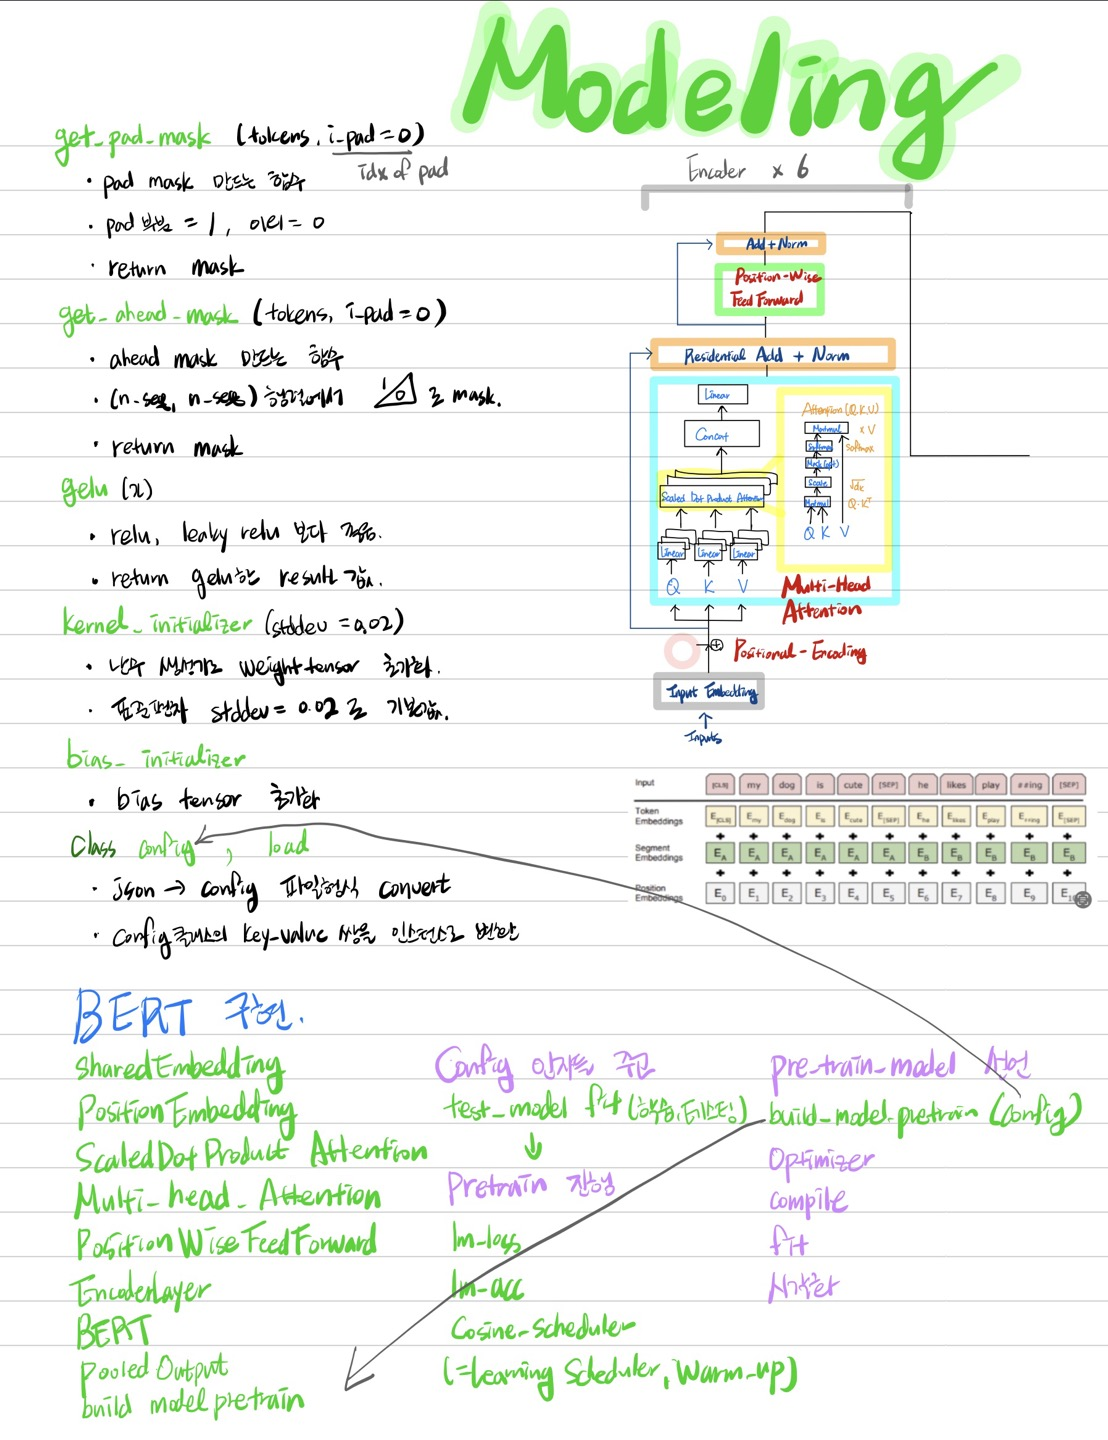 Modeling
get_pad_mask (tokens, i_pad=0)
idx of pad
• pad mask 만드는 함수
• pad 부분 = 1, 이외 = 0
• return mask
get_ahead_mask (tokens, i_pad=0)
• ahead mask 만드는 함수
• (n-seq, n-seq) 행렬에서 1 0 로 mask.
• return mask
gelu (x)
• relu, leaky relu 보다 좋음.
• return gelu한 result 값.
kernel_initializer (stddev = 0.02)
• 난수 생성기로 weight tensor 초기화.
• 표준편차 stddev = 0.02 로 기본값.
bias_initializer
• bias tensor 초기화
Class config, load
• json → config 파일형식 convert
• Config클래스의 key-value 쌍을 인스턴스로 변환
Encoder × 6
Add + Norm
Position-Wise
Feed Forward
Residential Add + Norm
Linear
Concat
Scaled Dot Product Attention
Linear Linear Linear
Q K V
Attention (Q.K.V)
Matmul × V
Softmax softmax
Mask(opt)
Scale √dk
Matmul Q·Kᵀ
Q K V
Multi-Head
Attention
+ Positional-Encoding
Input Embedding
↑
Inputs
Input [CLS] my dog is cute [SEP] he likes play ##ing [SEP]
Token Embeddings E[CLS] Emy Edog Eis Ecute E[SEP] Ehe Elikes Eplay E##ing E[SEP]
Segment Embeddings EA EA EA EA EA EA EB EB EB EB EB
Position Embeddings E0 E1 E2 E3 E4 E5 E6 E7 E8 E9 E10
BERT 구현.
SharedEmbedding
PositionEmbedding
ScaledDotProduct Attention
Multi_head_Attention
PositionWiseFeedForward
EncoderLayer
BERT
Pooled Output
build model pretrain
Config 인자를 주고
test_model fit (학습, 테스팅)
↓
Pretrain 진행
lm-loss
lm-acc
Cosine-scheduler
(=Learning Scheduler, Warm_up)
pre-train_model 선언
build_model_pretrain (config)
Optimizer
compile
fit
시각화